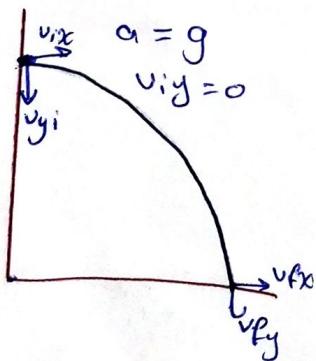 vix a = g
viy = 0
vyi
vfx
vfy